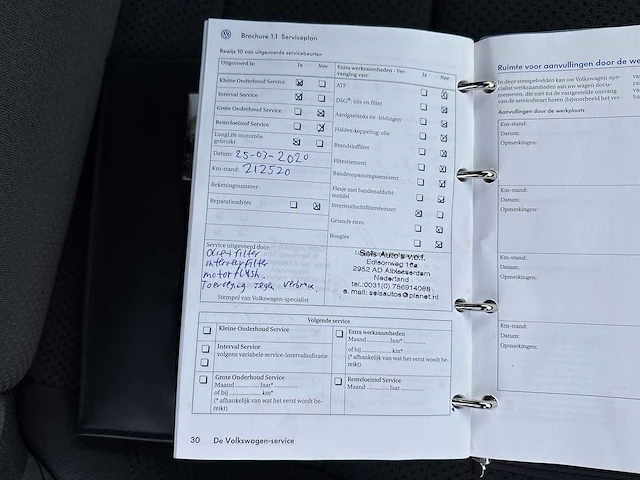 Brochure 1.1 Serviceplan
Bewijs 10 van uitgevoerde servicebeurten
Uitgevoerd te: Ja Nee
Kleine Onderhoud Service
Interval Service
Grote Onderhoud Service
Remvloeistof Service
LongLife motorolie
gebruikt
Datum: 25-03-2020
Km-stand: 212520
Rekeningnummer:
Reparatieadvies
Service uitgevoerd door:
Olie + filter
interieurfilter
motorflush.
Toevoeging tegen verbruik
Stempel van Volkswagen-specialist
Extra werkzaamheden - Ver-
vanging van: Ja Nee
ATF
DSG®: olie en filter
Aardgastanks en -leidingen
Haldex-koppeling: olie
Brandstoffilter
Filterelement
Bandenspanningssensoren
Flesje met bandenafdicht-
middel
Interieurluchtfilterelement
Getande riem
Bougies
Sels Auto's v.o.f.
Edisonweg 16a
2952 AD Alblasserdam
Nederland
tel.:0031(0) 786914088
e. mail: selsautos@planet.nl
Volgende service
Kleine Onderhoud Service
Interval Service
volgens variabele service-intervalindicatie
Grote Onderhoud Service
Maand ............ Jaar* ............
of bij ............ km*
(* afhankelijk van wat het eerst wordt be-
reikt)
Extra werkzaamheden
Maand ............ Jaar* ............
of bij ............ km*
(* afhankelijk van wat het eerst wordt be-
reikt)
Remvloeistof Service
Maand ............ Jaar ............
30 De Volkswagen-service
Ruimte voor aanvullingen door de we
In deze stempelvelden kan uw Volkswagen-spe-
cialist werkzaamheden aan uw wagen docu-
menteren, die niet tot de vastgestelde omvang
van de servicebeurt horen (bijvoorbeeld het ver-
Aanvullingen door de werkplaats
Km-stand:
Datum:
Opmerkingen:
Km-stand:
Datum:
Opmerkingen:
Km-stand:
Datum:
Opmerkingen:
Km-stand:
Datum:
Opmerkingen: